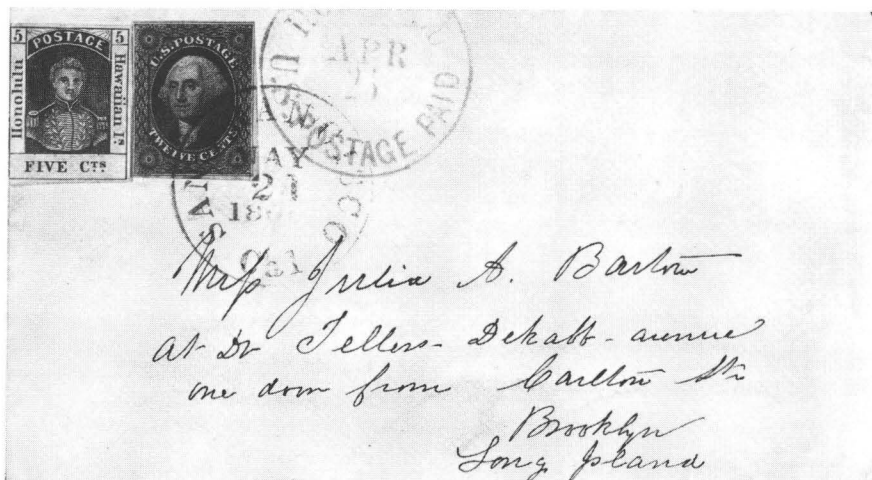 5 POSTAGE 5
Honolulu
Hawaiian Is.
FIVE CTS
U.S. POSTAGE
TWELVE CENTS
U.S. POSTAGE PAID
APR
SAN FRANCISCO
MAY
2
Cal
Miss Julia A. Bartow
at Dr Tellers - Dekalb - avenue
one door from Carlton St
Brooklyn
Long Island